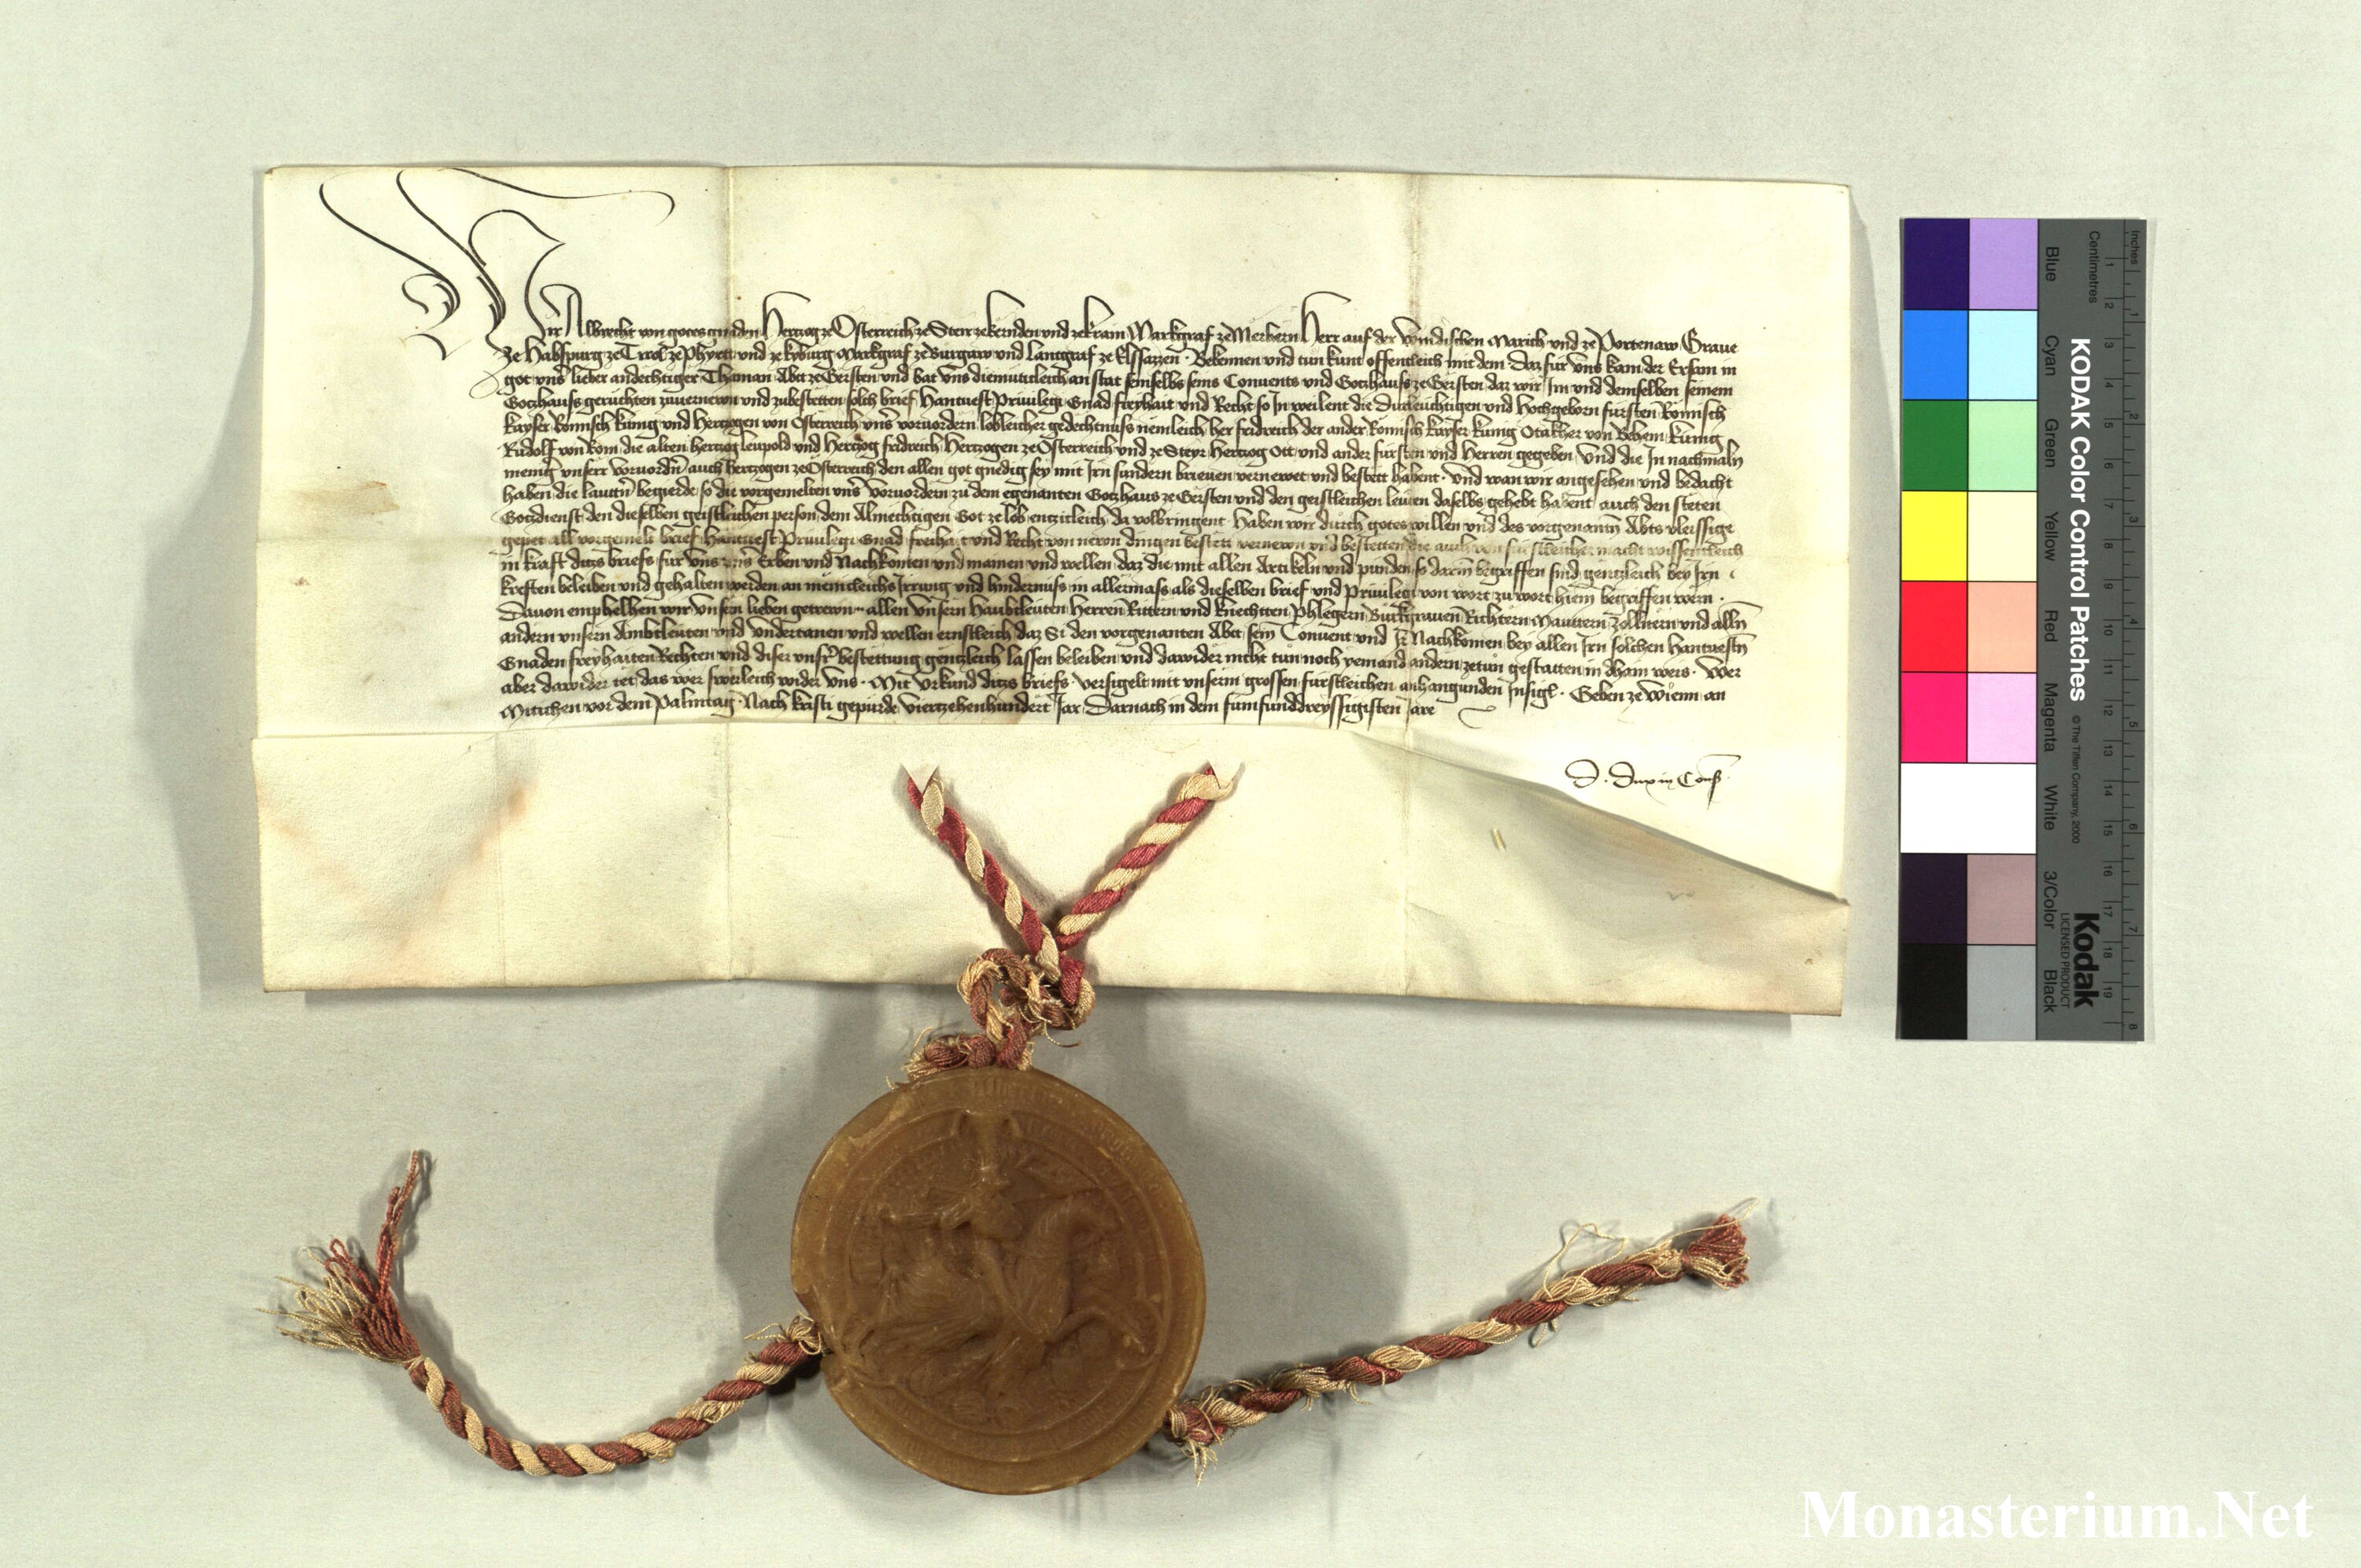 Wir Albrecht von gotes gnaden Hertzog ze Österreich ze Steir ze kernden und ze krain Markgraf ze Merhern Herr auf der Windischen Marich und ze Portenaw Graue
ze Habspurg ze Tirol ze Phyertt und ze kyburg Markgraf ze Burgaw und lantgraf ze Elsazzen · Bekennen und tun kunt offentleich mit dem · Daz fur Uns kam der Ersam in
got unsˀ lieber andechtiger Thaman Abbt ze Gersten und bat Uns diemuticleich an stat seinselbs seins Conuents und Gotzhauss ze Gersten daz wir Im und demselben seinem
Gotzhauss geruchten zuuernewn und zubestetten solch brief Hantuest Priuilegi Gnad freyhait und Recht so In weilent die Durleuchtigen und Hochgeborn fursten Romisch
kayser Romisch kunig und Hertzogen von Österreich unsˀ voruordern lobleicher gedechtnuss nemleich her fridreich der ander Romisch kayser kunig Otakher von Behem kunig
Rudolf von Rom die alten hertzog leupold und Hertzog fridreich Hertzogen ze Österreich und ze Steyr Hertzog Ott und ander fursten und Herren gegeben Und die In nachmaln
menigˀ unserr voruordˀn auch hertzogen ze Österreich den allen got gnedig sey mit Irn sundern brieuen vernewet und bestett habent · Und wan wir angesehen und bedacht
haben die lauttˀn begierde so die vorgemelten unsˀ Voruordern zu dem egenanten Gotzhaus ze Gersten und den geistleichen leuten daselbs gehebt habent auch den steten
Gotzdienst den dieselben geistleichen person dem Almechtigen Got ze lob entzicleich da volbringent Haben wir durch gotes willen und des vorgenantˀn Abts vleissige
gepet all vorgemelt brief Hantuest Priuilegi Gnad freihait und Recht von newn dingen bestett vernewn und bestetten die auch von furstleicher macht wissentleich
in kraft ditzs briefs fur Uns unsˀ Erben und Nachkomen und mainen und wellen daz die mit allen Artikeln und punden so darin begriffen sind gentzleich bey Irn
kreften beleiben und gehalten werden an menicleichs Irrung und hindernuss in allermass als dieselben brief und Priuilegi von wort zu wort hierin begriffen wern ·
Dauon emphelhen wir unsern lieben getrewn allen unsern Haubtleuten Herren Rittern und knechtten Phlegern Burkgrauen Richtern Mauttern Zollnern und allˀn
andern unsern Ambtleuten und undertanen und wellen ernstleich daz Si den vorgenanten Abbt sein Conuent und Ir Nachkomen bey allen Irn solchen Hantuestˀn
Gnaden freyhaiten Rechten und diser unsrˀ bestettung gentzleich lassen beleiben und dawider nicht tun noch yemand andern ze tun gestatten in dhain weis · Wer
aber dawider tet das wer swerleich wider Uns · Mit Urkund ditzs briefs versigelt mit unserm grossen furstleichen anhangunden Insigl · Geben ze Wienn an
Mittichen vor dem Palmtag · Nach kristi gepurde Viertzehenhundert Jar Darnach in dem funfunddreyssigisten Jare
D. Dux in Cons
KODAK Color Control Patches
© The Tiffen Company, 2000
Kodak
LICENSED PRODUCT
Inches
Centimetres
Blue Cyan Green Yellow Red Magenta White 3/Color Black
1 2 3 4 5 6 7 8 9 10 11 12 13 14 15 16 17 18 19
1 2 3 4 5 6 7 8
Monasterium.Net